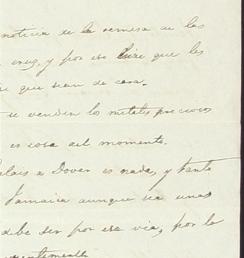 noticia de la remesa de las
cruz, y por eso hice que les
que sean de casa.
se venden los metales preciosos
es cosa del momento.
Calais a Dover es nada, y tanto
Jamaica aunque sea unas
debe ser por esa via, por la